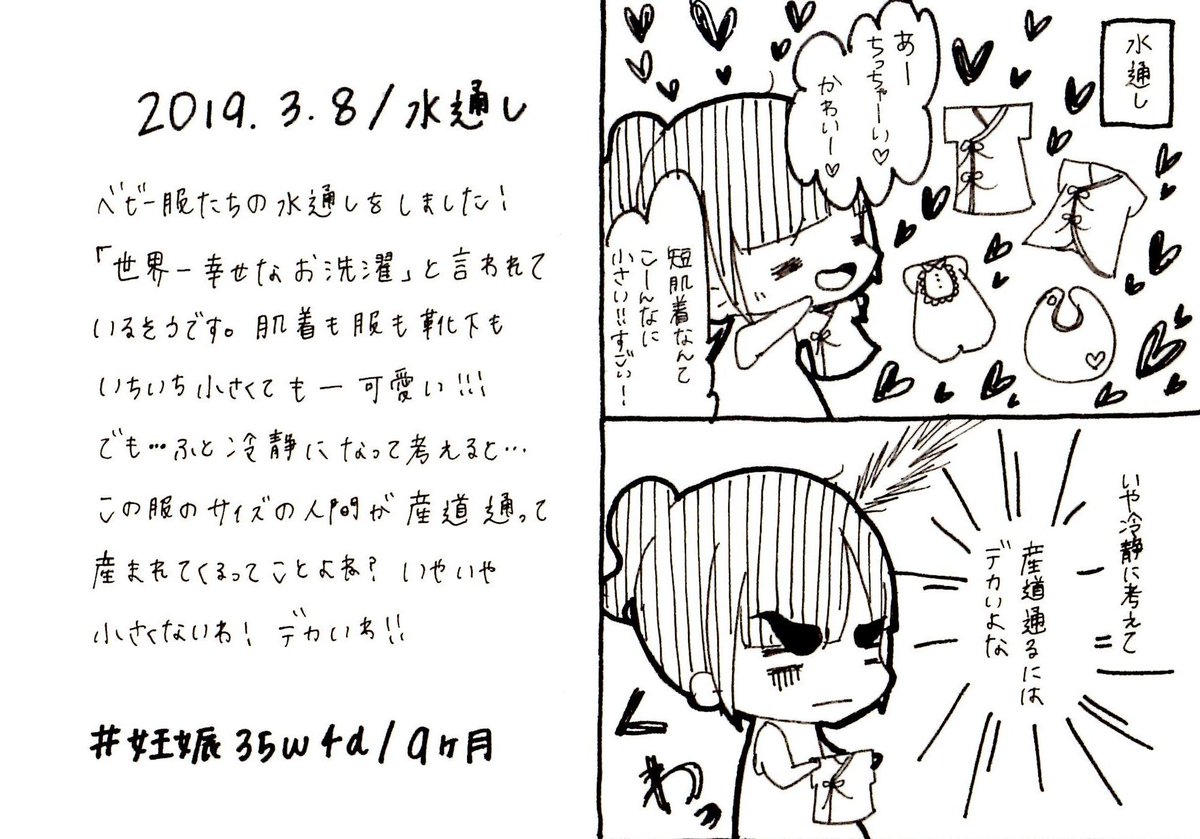 2019.3.8/水通し
ベビー服たちの水通しをしました!
「世界一幸せなお洗濯」と言われて
いるそうです。肌着も服も靴下も
いちいち小さくてもー可愛い!!!
でも…ふと冷静になって考えると…
この服のサイズの人間が産道通って
産まれてくるってことよね?いやいや
小さくないわ!デカいわ!!
#妊娠35w4d/9ヶ月
水通し
あー
ちっちゃーい♡
かわいー♡
短肌着なんて
こーんなに
小さい!!すごい!
いや冷静に考えて
産道通るには
デカいよな
じわっ